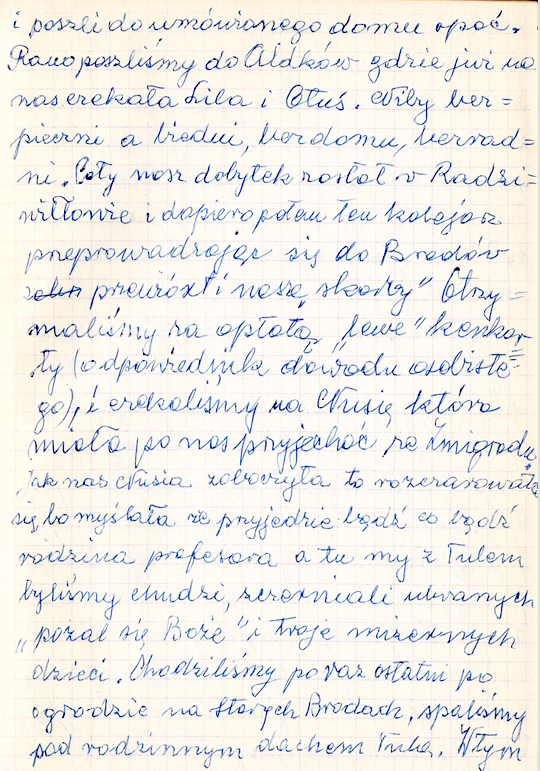 i poszli do umówionego domu spać.
Rano poszliśmy do Aldków gdzie już na
nas czekała Lila i Otuś. Niby bez=
pieczni a biedni, bez domu, bezrad=
ni. Cały nasz dobytek został w Radzi=
wiłłowie i dopiero potem ten kolejarz
przeprowadzając się do Brodów
przewiózł i nasze „skarby" Otrzy=
maliśmy za opłatą „lewe" kenkar=
ty (odpowiednik dowodu osobiste=
go), i czekaliśmy na Nusię która
miała po nas przyjechać ze Żmigrodu.
Jak nas Nusia zobaczyła to rozczarowała
się, bo myślała że przyjedzie bądź co bądź
rodzina profesora a tu my z Tulem
byliśmy chudzi, sczerniali ubranych
„pożal się Boże" i troje mizernych
dzieci. Chodziliśmy po raz ostatni po
ogrodzie na Starych Brodach, spaliśmy
pod rodzinnym dachem Tula. W tym